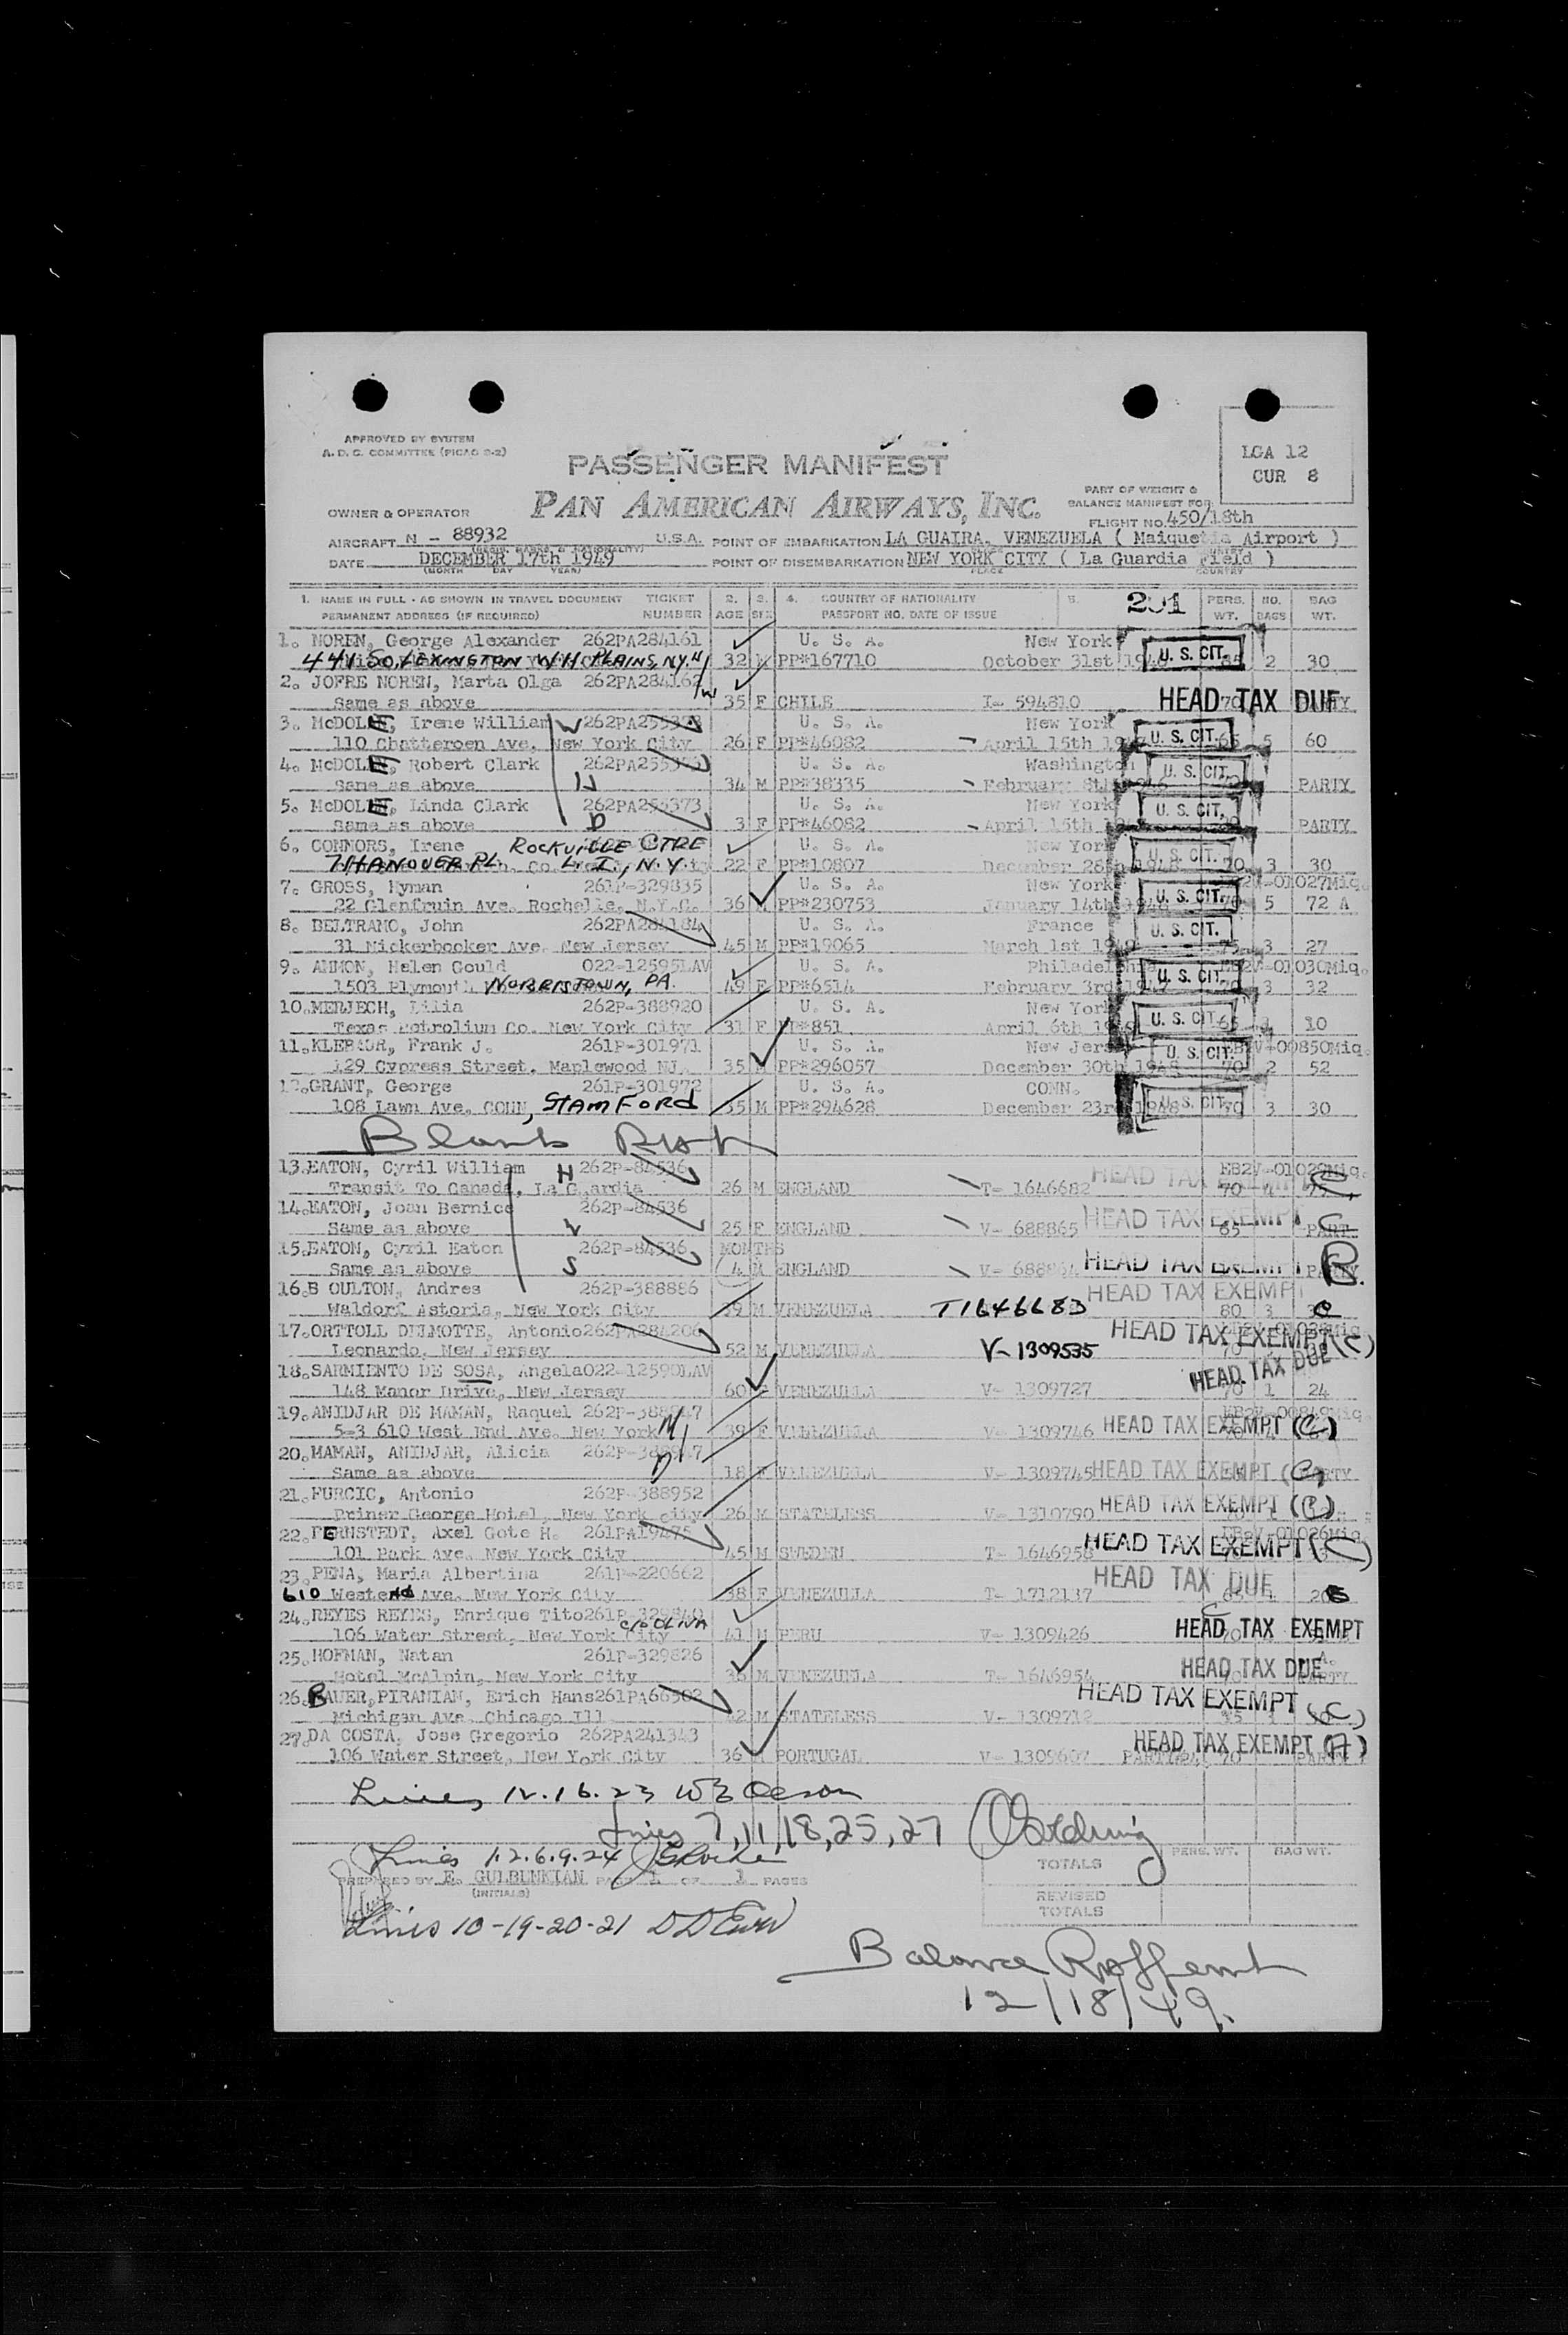 APPROVED BY SYSTEM
A. D. C. COMMITTEE (PICAO 2-2)
LGA 12
CUR 8
PASSENGER MANIFEST
PAN AMERICAN AIRWAYS, INC.
PART OF WEIGHT &
BALANCE MANIFEST FOR
OWNER & OPERATOR
FLIGHT NO. 450/18th
AIRCRAFT N - 88932 U.S.A. POINT OF EMBARKATION LA GUAIRA, VENEZUELA ( Maiquetia Airport )
DATE DECEMBER 17th 1949 POINT OF DISEMBARKATION NEW YORK CITY ( La Guardia Field )
(MONTH DAY YEAR) PLACE COUNTRY
1. NAME IN FULL - AS SHOWN IN TRAVEL DOCUMENT TICKET 2. 3. 4. COUNTRY OF NATIONALITY 5. 201 PERS. NO. BAG
PERMANENT ADDRESS (IF REQUIRED) NUMBER AGE SEX PASSPORT NO. DATE OF ISSUE WT. BAGS WT.
1. NOREN, George Alexander 262PA284161 U. S. A. New York
441 SO. LEXINGTON WH. PLAINS, N.Y. H 32 M PP#167710 October 31st U. S. CIT. 2 30
2. JOFRE NOREN, Marta Olga 262PA284162 W
Same as above 35 F CHILE I- 594810 HEAD TAX DUE 70
3. McDOLE, Irene William W U. S. A. New York
110 Chatteroen Ave. New York City 26 F PP#46082 April 15th U. S. CIT. 65 5 60
4. McDOLE, Robert Clark U. S. A. Washington
Same as above H 34 M PP#38335 February U. S. CIT. PARTY
5. McDOLE, Linda Clark 262PA255373 U. S. A. New York
Same as above D 3 F PP#46082 April 15th U. S. CIT. PARTY
6. CONNORS, Irene ROCKVILLE CTRE U. S. A. New York
71 HANOVER PL. L. I., N. Y. 22 F PP#10807 December 28th 1948 U. S. CIT. 70 3 30
7. GROSS, Hyman 261P-329835 U. S. A. New York -01027Miq.
22 Glenfruin Ave. Rochelle, N.Y.C. 36 M PP#230753 January 14th U. S. CIT. 5 72 A
8. BELTRANO, John 262PA284184 U. S. A. France
31 Nickerbocker Ave. New Jersey 45 M PP#19065 March 1st U. S. CIT. 3 27
9. AMMON, Helen Gould 022-12595LAV U. S. A. Philadelphia EB2V-01030Miq.
1503 Plymouth NORRISTOWN, PA. 49 F PP#6514 February 3rd U. S. CIT. 3 32
10. MERJECH, Lilia 262P-388920 U. S. A. New York
Texas Petrolium Co. New York City 31 F PP#851 April 6th U. S. CIT. 65 10
11. KLEBAUR, Frank J. 261P-301971 U. S. A. New Jersey EB2V-00850Miq.
129 Cypress Street. Maplewood NJ. 35 M PP#296057 December 30th 1948 U. S. CIT. 70 2 52
12. GRANT, George 261P-301972 U. S. A. CONN.
108 Lawn Ave. CONN, STAMFORD 35 M PP#294628 December 23rd 1948 U. S. CIT. 70 3 30
13. EATON, Cyril William H 262P-84536 HEAD TAX
Transit To Canada, La Guardia 26 M ENGLAND T- 1646682 70
14. EATON, Joan Bernice 262P-84536 HEAD TAX EXEMPT C
Same as above W 25 F ENGLAND V- 688865 65
15. EATON, Cyril Eaton 262P-84536 MONTHS
Same as above S 4 M ENGLAND V- HEAD TAX EXEMPT
16. BOULTON, Andres 262P-388886 HEAD TAX EXEMPT
Waldorf Astoria, New York City 39 M VENEZUELA T1646683 80 3
17. ORTTOLL DELMOTTE, Antonio 262PA284206 HEAD TAX EXEMPT (C)
Leonardo, New Jersey 52 M VENEZUELA V-1309535
18. SARMIENTO DE SOSA, Angela 022-12590LAV HEAD TAX DUE
148 Manor Drive, New Jersey 60 VENEZUELA V- 1309727 70 1 24
19. ANIDJAR DE MAMAN, Raquel EB2V-00849Miq.
5-3 610 West End Ave. New York M 39 F VENEZUELA V- 1309746 HEAD TAX EXEMPT (C)
20. MAMAN, ANIDJAR, Alicia
Same as above D 18 F VENEZUELA V- 1309745 HEAD TAX EXEMPT (C) PARTY
21. FURCIC, Antonio 262P-388952 HEAD TAX EXEMPT
Priner George Hotel, New York city 26 M STATELESS V- 1310790
22. FERNSTEDT, Axel Gote H. 261PA19475 EB2V-01026Miq.
101 Park Ave. New York City 45 M SWEDEN T- 1646958 HEAD TAX EXEMPT (C)
23. PENA, Maria Albertina 261P-220662 HEAD TAX DUE
610 Westend Ave. New York City 38 F VENEZUELA T- 1712137 65
24. REYES REYES, Enrique Tito C/O OLIVA
106 Water Street, New York City 41 M PERU V- 1309426 HEAD TAX EXEMPT
25. HOFMAN, Natan 261P-329826 HEAD TAX DUE
Hotel McAlpin, New York City 36 M VENEZUELA T- 1646954 PARTY
26. BAUER, PIRANIAN, Erich Hans 261PA66302 HEAD TAX EXEMPT (C)
Michigan Ave. Chicago Ill 42 M STATELESS V- 1309712
27. DA COSTA, Jose Gregorio 262PA241343 HEAD TAX EXEMPT (A)
106 Water Street, New York City 36 M PORTUGAL V- 1309607 70 PARTY
Lines 12.16.23
Lines 7,11,18,25,27
Lines 1.2.6.9.24
PREPARED BY E. GULBENKIAN PAGE 1 OF 1 PAGES
(INITIALS)
TOTALS PERS. WT. BAG WT.
REVISED
TOTALS
Lines 10-19-20-21
Balance
12/18/49.